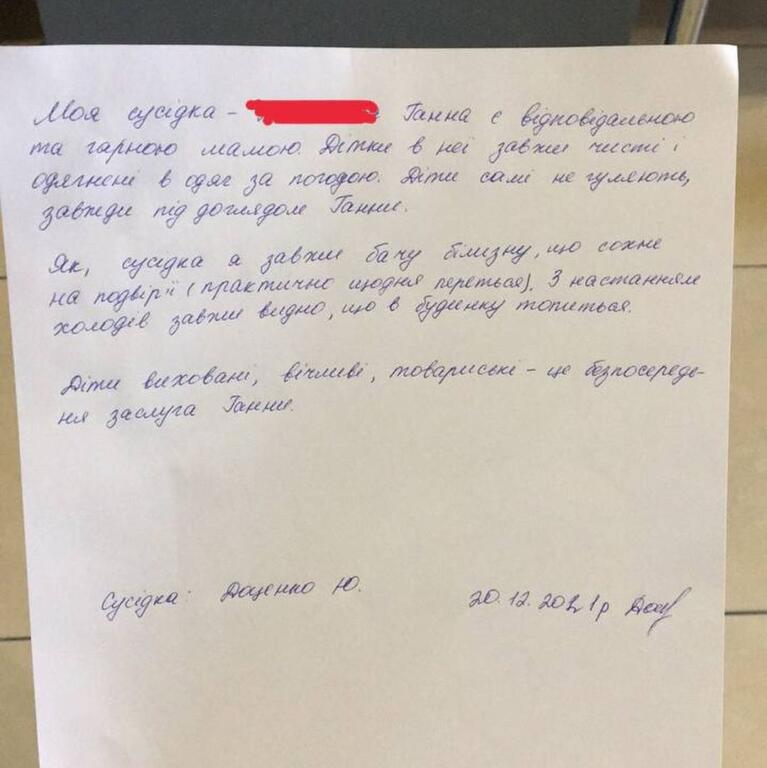 Моя сусідка - Ганна є відповідальною
та гарною мамою. Дітки в неї завжи чисті і
одягнені в одяг за погодою. Діти самі не гуляють,
завжди під доглядом Ганни.
Як, сусідка я завжи бачу білизну, що сохне
на подвір'ї (практично щодня переться). З настанням
холодів завжи видно, що в будинку топиться.
Діти виховані, вічливі, товариські - це безпосеред-
ня заслуга Ганни.
Сусідка: Доценко Ю. 20.12.2021р